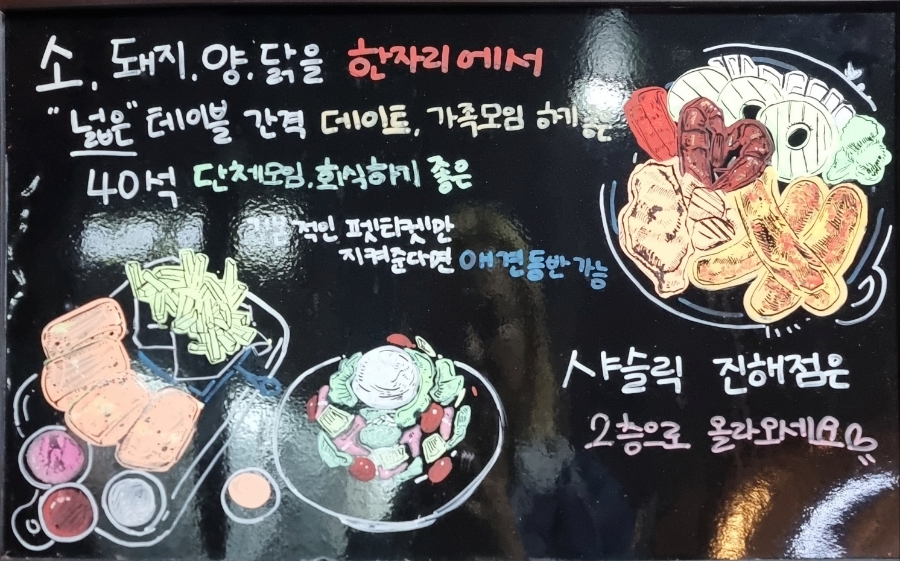 소, 돼지, 양, 닭을 한자리에서
"넓은" 테이블 간격 데이트, 가족모임 하기 좋은
40석 단체모임, 회식하기 좋은
적인 펫티켓만
지켜준다면 애견동반 가능
샤슬릭 진해점은
2층으로 올라와세요